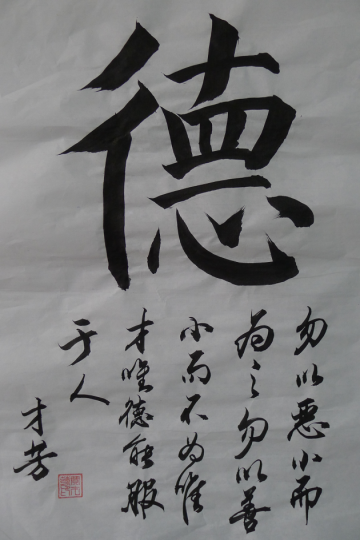 德
勿以恶小而
为之勿以善
小而不为惟
才唯德能服
于人
才芳